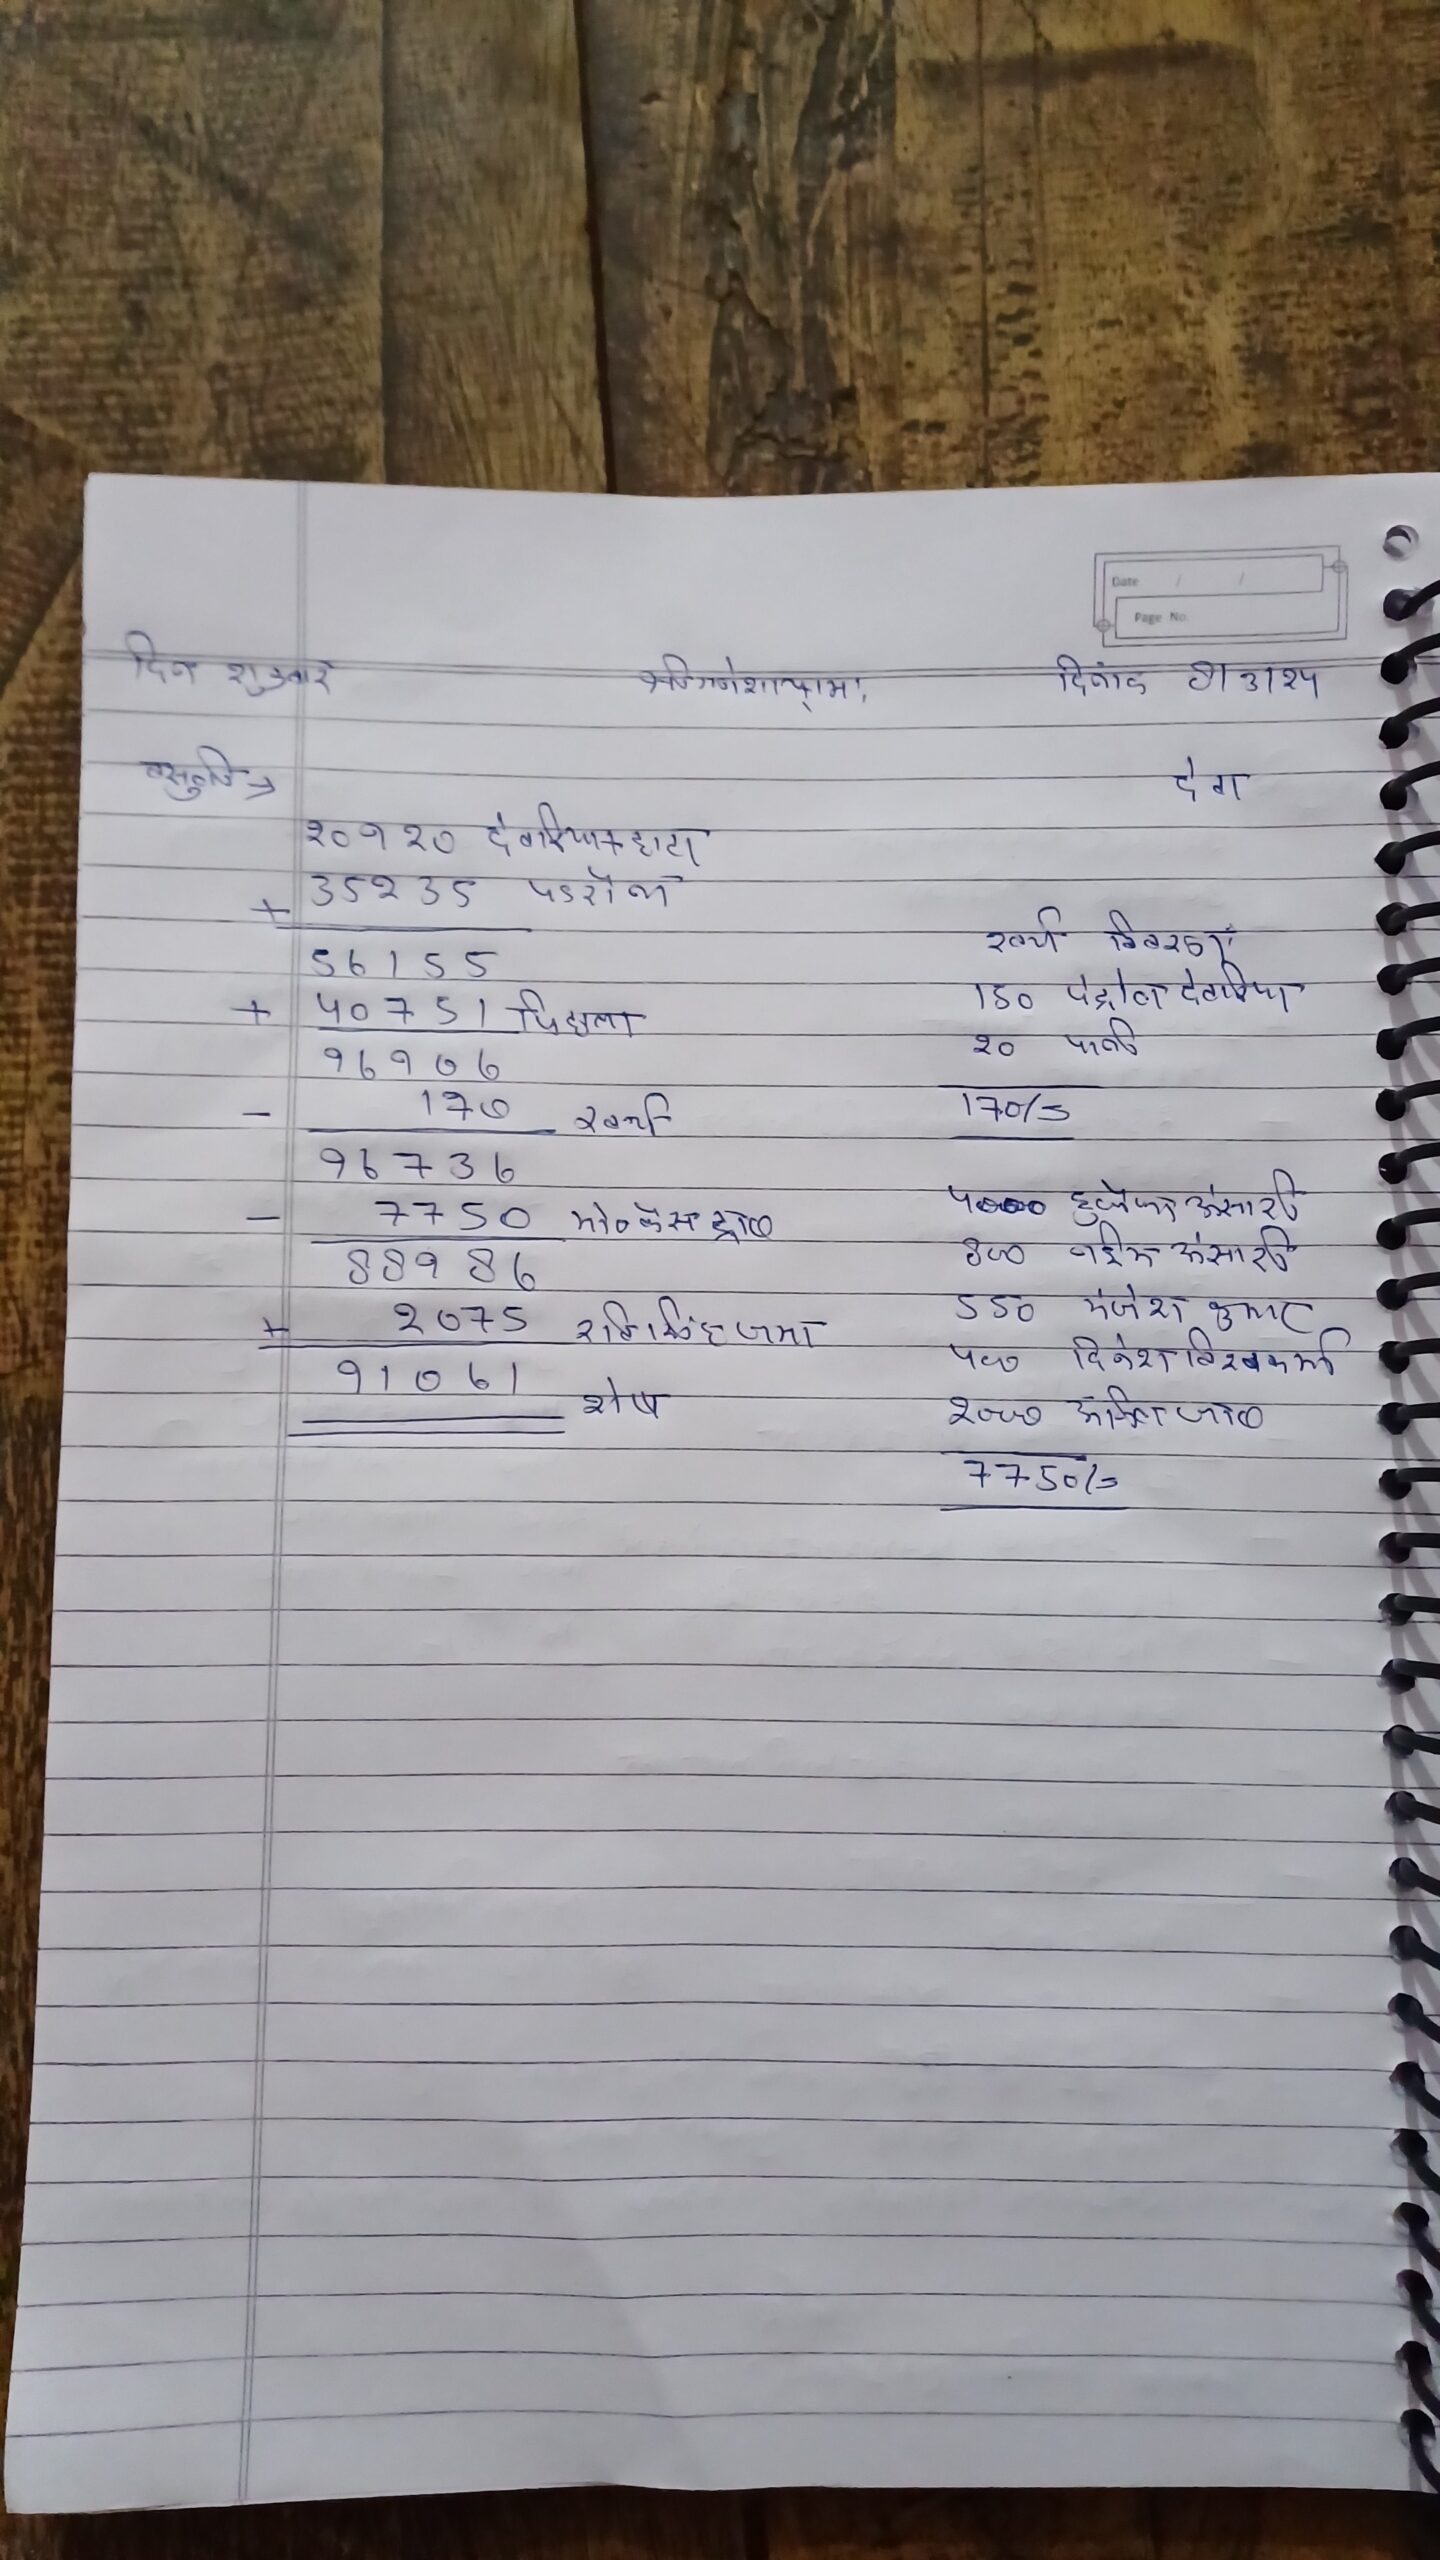 Date / /
Page No.
दिन शुक्रवार श्री गणेशाय नमः दिनांक 7/3/25
वसुली → देवा
20920 देवरिया+हाटा
35235 पडरौना
+
56155
+ 40751 पिछला
96906
- 170 खर्चा
96736
- 7750 मो० कैस ड्रा०
88986
+ 2075 रवि सिंह जमा
91061 शेष
खर्चा विवरण:
150 पेट्रोल देवरिया
20 पानी
170/=
4000 हुजैफा अंसारी
800 नईम अंसारी
550 मंजेश कुमार
400 दिनेश विश्वकर्मा
2000
7750/=